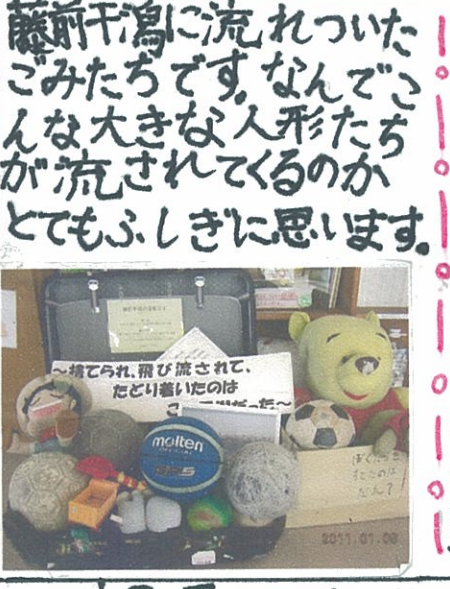 藤前干潟に流れついた
ごみたちです。なんでこ
んな大きな人形たち
が流されてくるのか
とてもふしぎに思います。
～捨てられ、飛び流されて、
たどり着いたのは
molten
2011.01.08